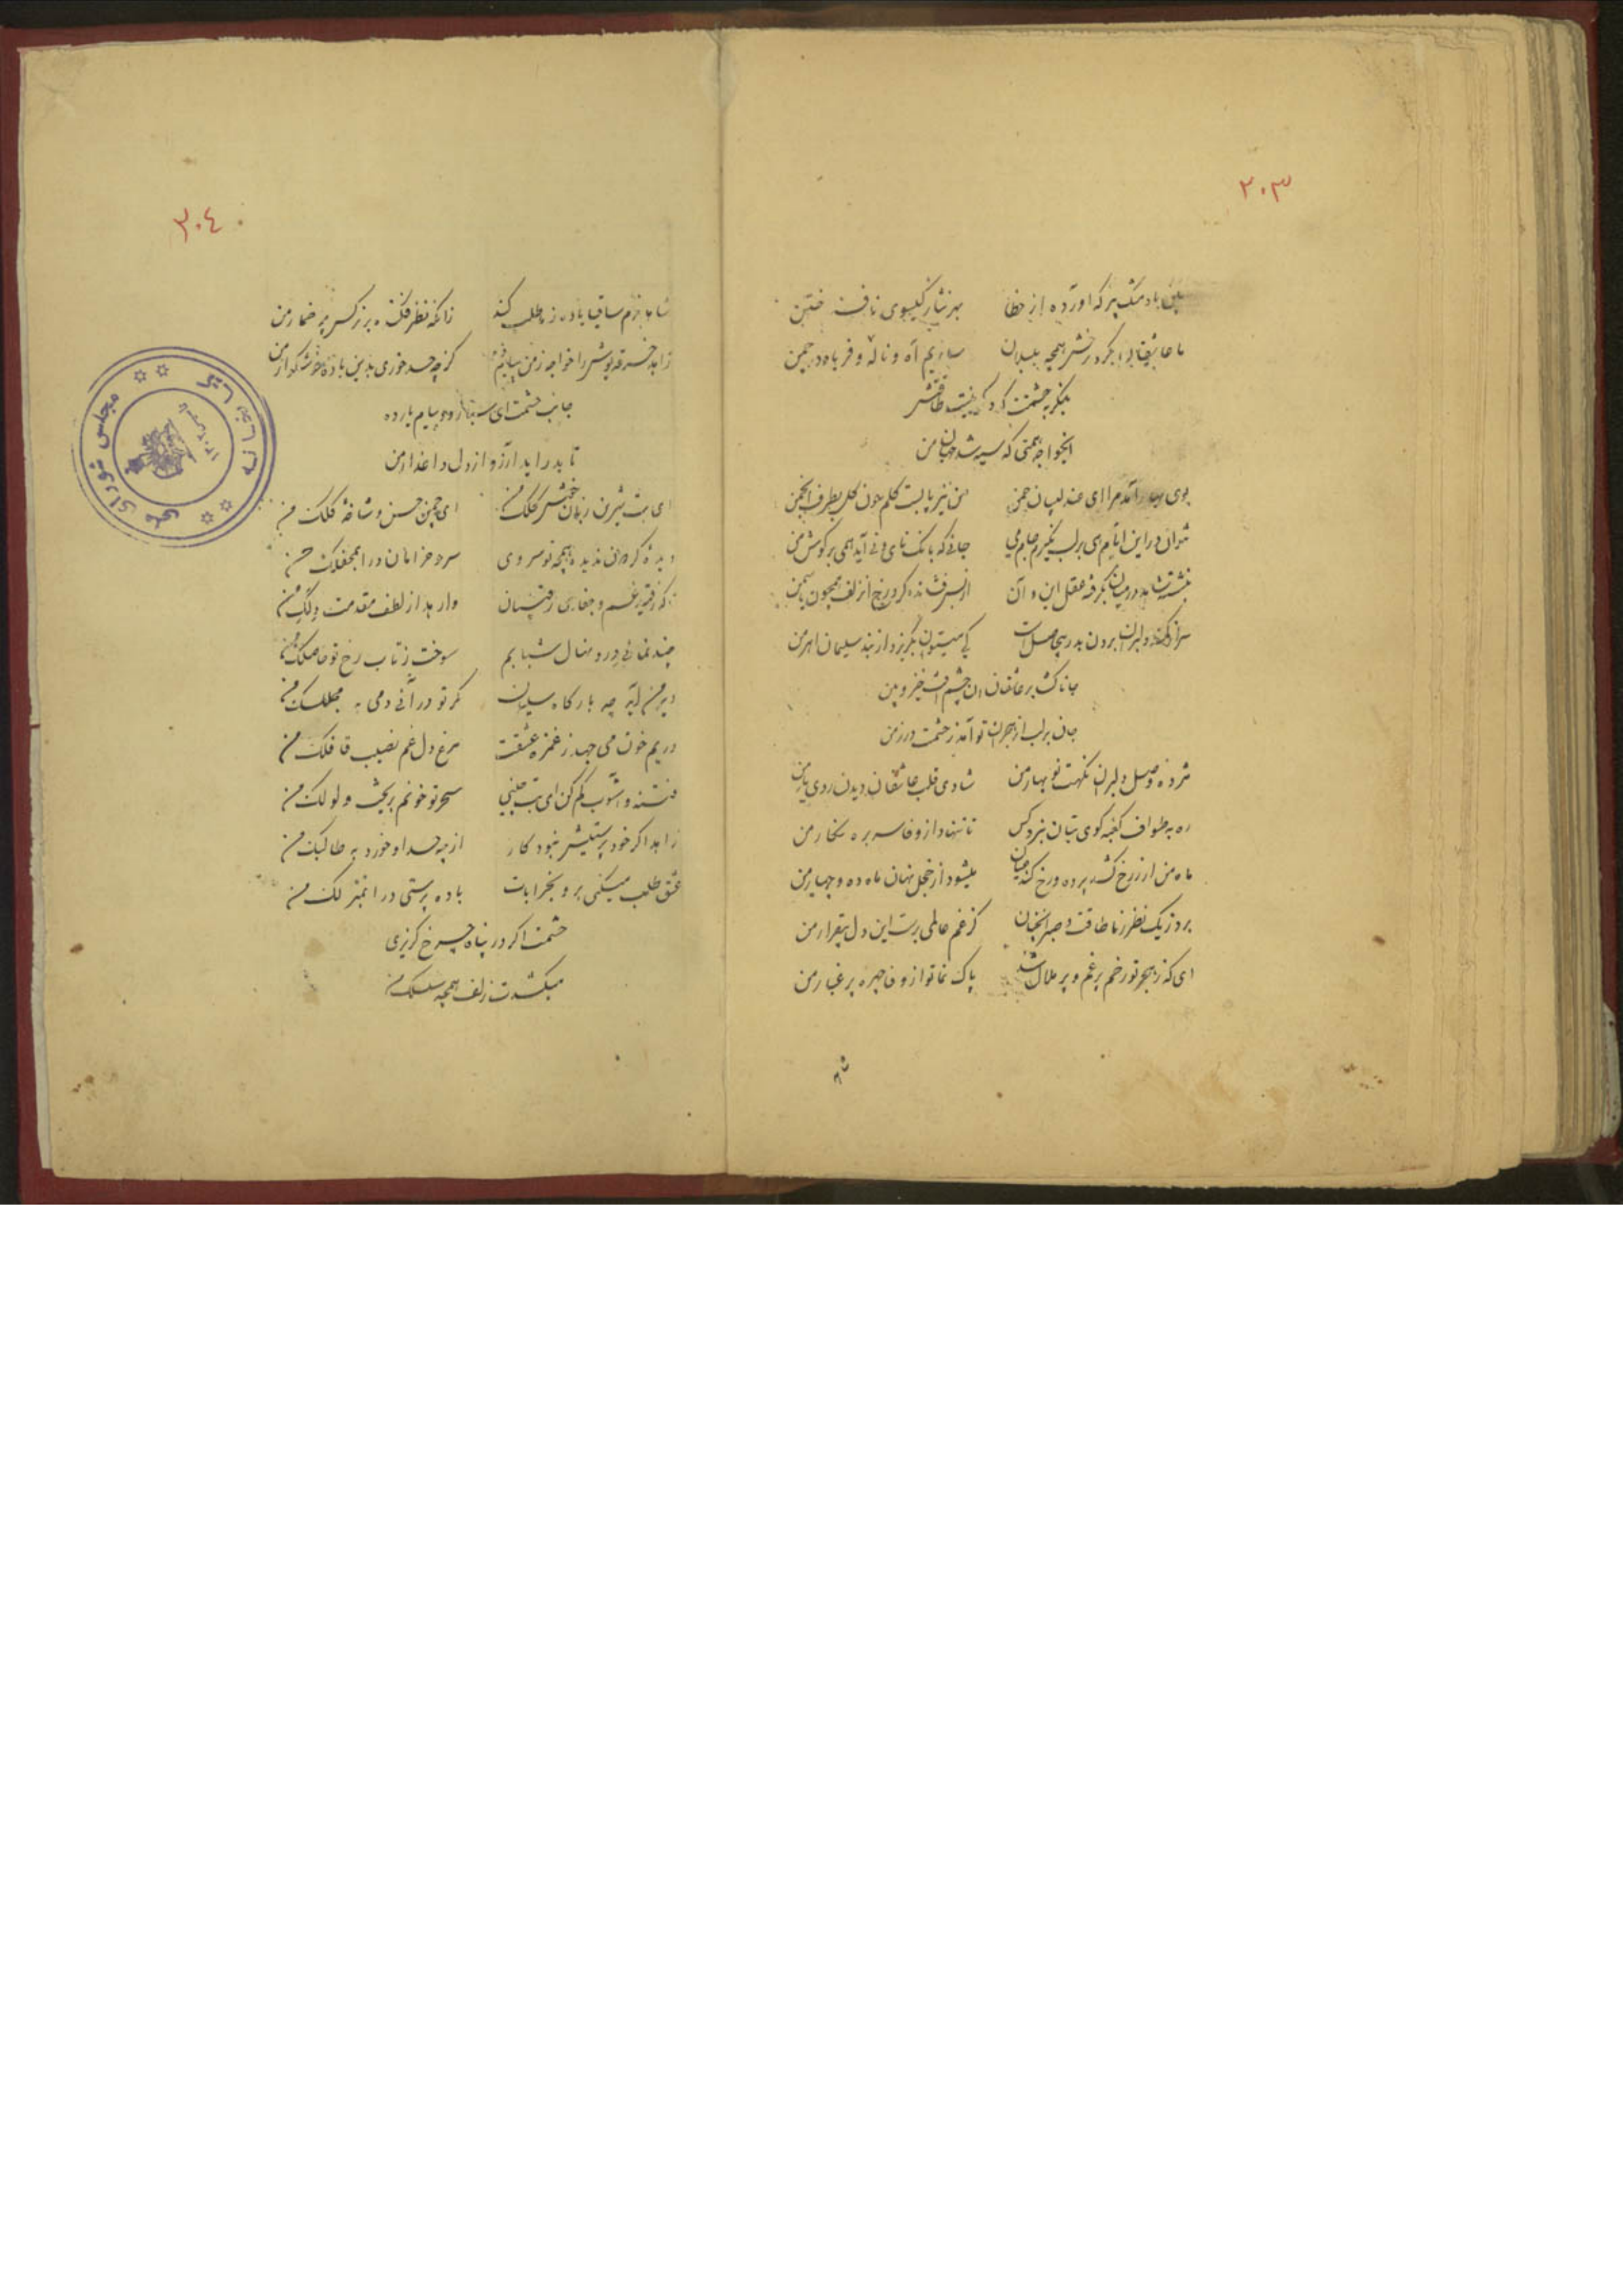 ۲۰۳
باد مشک پر که آورده از خطا بهر نثار گیسوی نافه ختن
ما عاشقان بگرد رخش همچه بلبلان سازیم آه و ناله و فریاد در چمن
بنگر به حشمتت که نیست طاقتش
ایخواجه همتی که سیه شد جهان من
بوی بهار آمدم ای عندلیبان چمن من نیز پابست گلم چون گل بطرف انجمن
نتوان در این ایام می بر لب نگیرم جام می جائی که بانک نای و نی آید همی بر گوش من
بنشسته شاهد در میان بگرفته عقل این و آن از بس فشانده گرد رخ از زلف همچون یاسمن
سر از کمند دلبران بردن بدر بیحاصل است کی میتوان بگریزد از بند سلیمان اهرمن
جانا گذر بر عاشقان چشم خیز و بین
جان بر لب از هجران تو آمد ز حشمت در زمن
مژده وصل دلبران نکهت نوبهار من شادی قلب عاشقان دیدن روی یار من
ره به طواف کعبه کوی بتان نبرد کس تا ننهاد از وفا سر بره نگار من
ماه من ار ز رخ کشد پرده و رخ کند عیان میشود از خجل نهان ماه ده و چهار من
برد ز یک نظر ز ما طاقت و صبر آنچنان کز غم عالمی برست این دل بیقرار من
ای که ز هجر تو رخم پر غم و پر ملال شد پاک نما تو از وفا چهره پر غبار من
۲۰۴
شاها بزم ساقیا باده ز ما طلب کند زانکه نظر فکنده بر نرگس پر خمار من
زاهد خرقه پوش را خواجه ز من پیام کز چه حسد خوری بدین باده خوشگوار من
جانب حشمت ای صبا رو و پیام یار ده
تا بدر آید آرزو از دل داغدار من
ای بت شیرین زبان خوش ای چمن حسن و شاخه گلک من
دیده گردون ندیده همچه تو سروی سرو خرامان درا بمحفلک من
غم و جفای رقیبان وارهد از لطف مقدمت دلک من
چند نمائی درو منال شبابم سوخت ز تاب رخ تو حاصلک من
چه بارگاه سلیمان گر تو درآئی دمی به محفلک من
دریم خون می جهد ز غمزه عشقت مرغ دل غم نصیب قافلک من
فتنه و آشوب کم کن ای بت چینی سحر تو خونم بریخت ولولک من
زاهد اگر خود پرستیش نبود کار از چه حسد او خورد به طالبک من
عشق طلب میکنی برو بخرابات باده پرستی درا بمنزلک من
حشمت اگر در پناه چرخ گریزی
میکشدت زلف همچه سلسلک من
مجلس شورای ملی